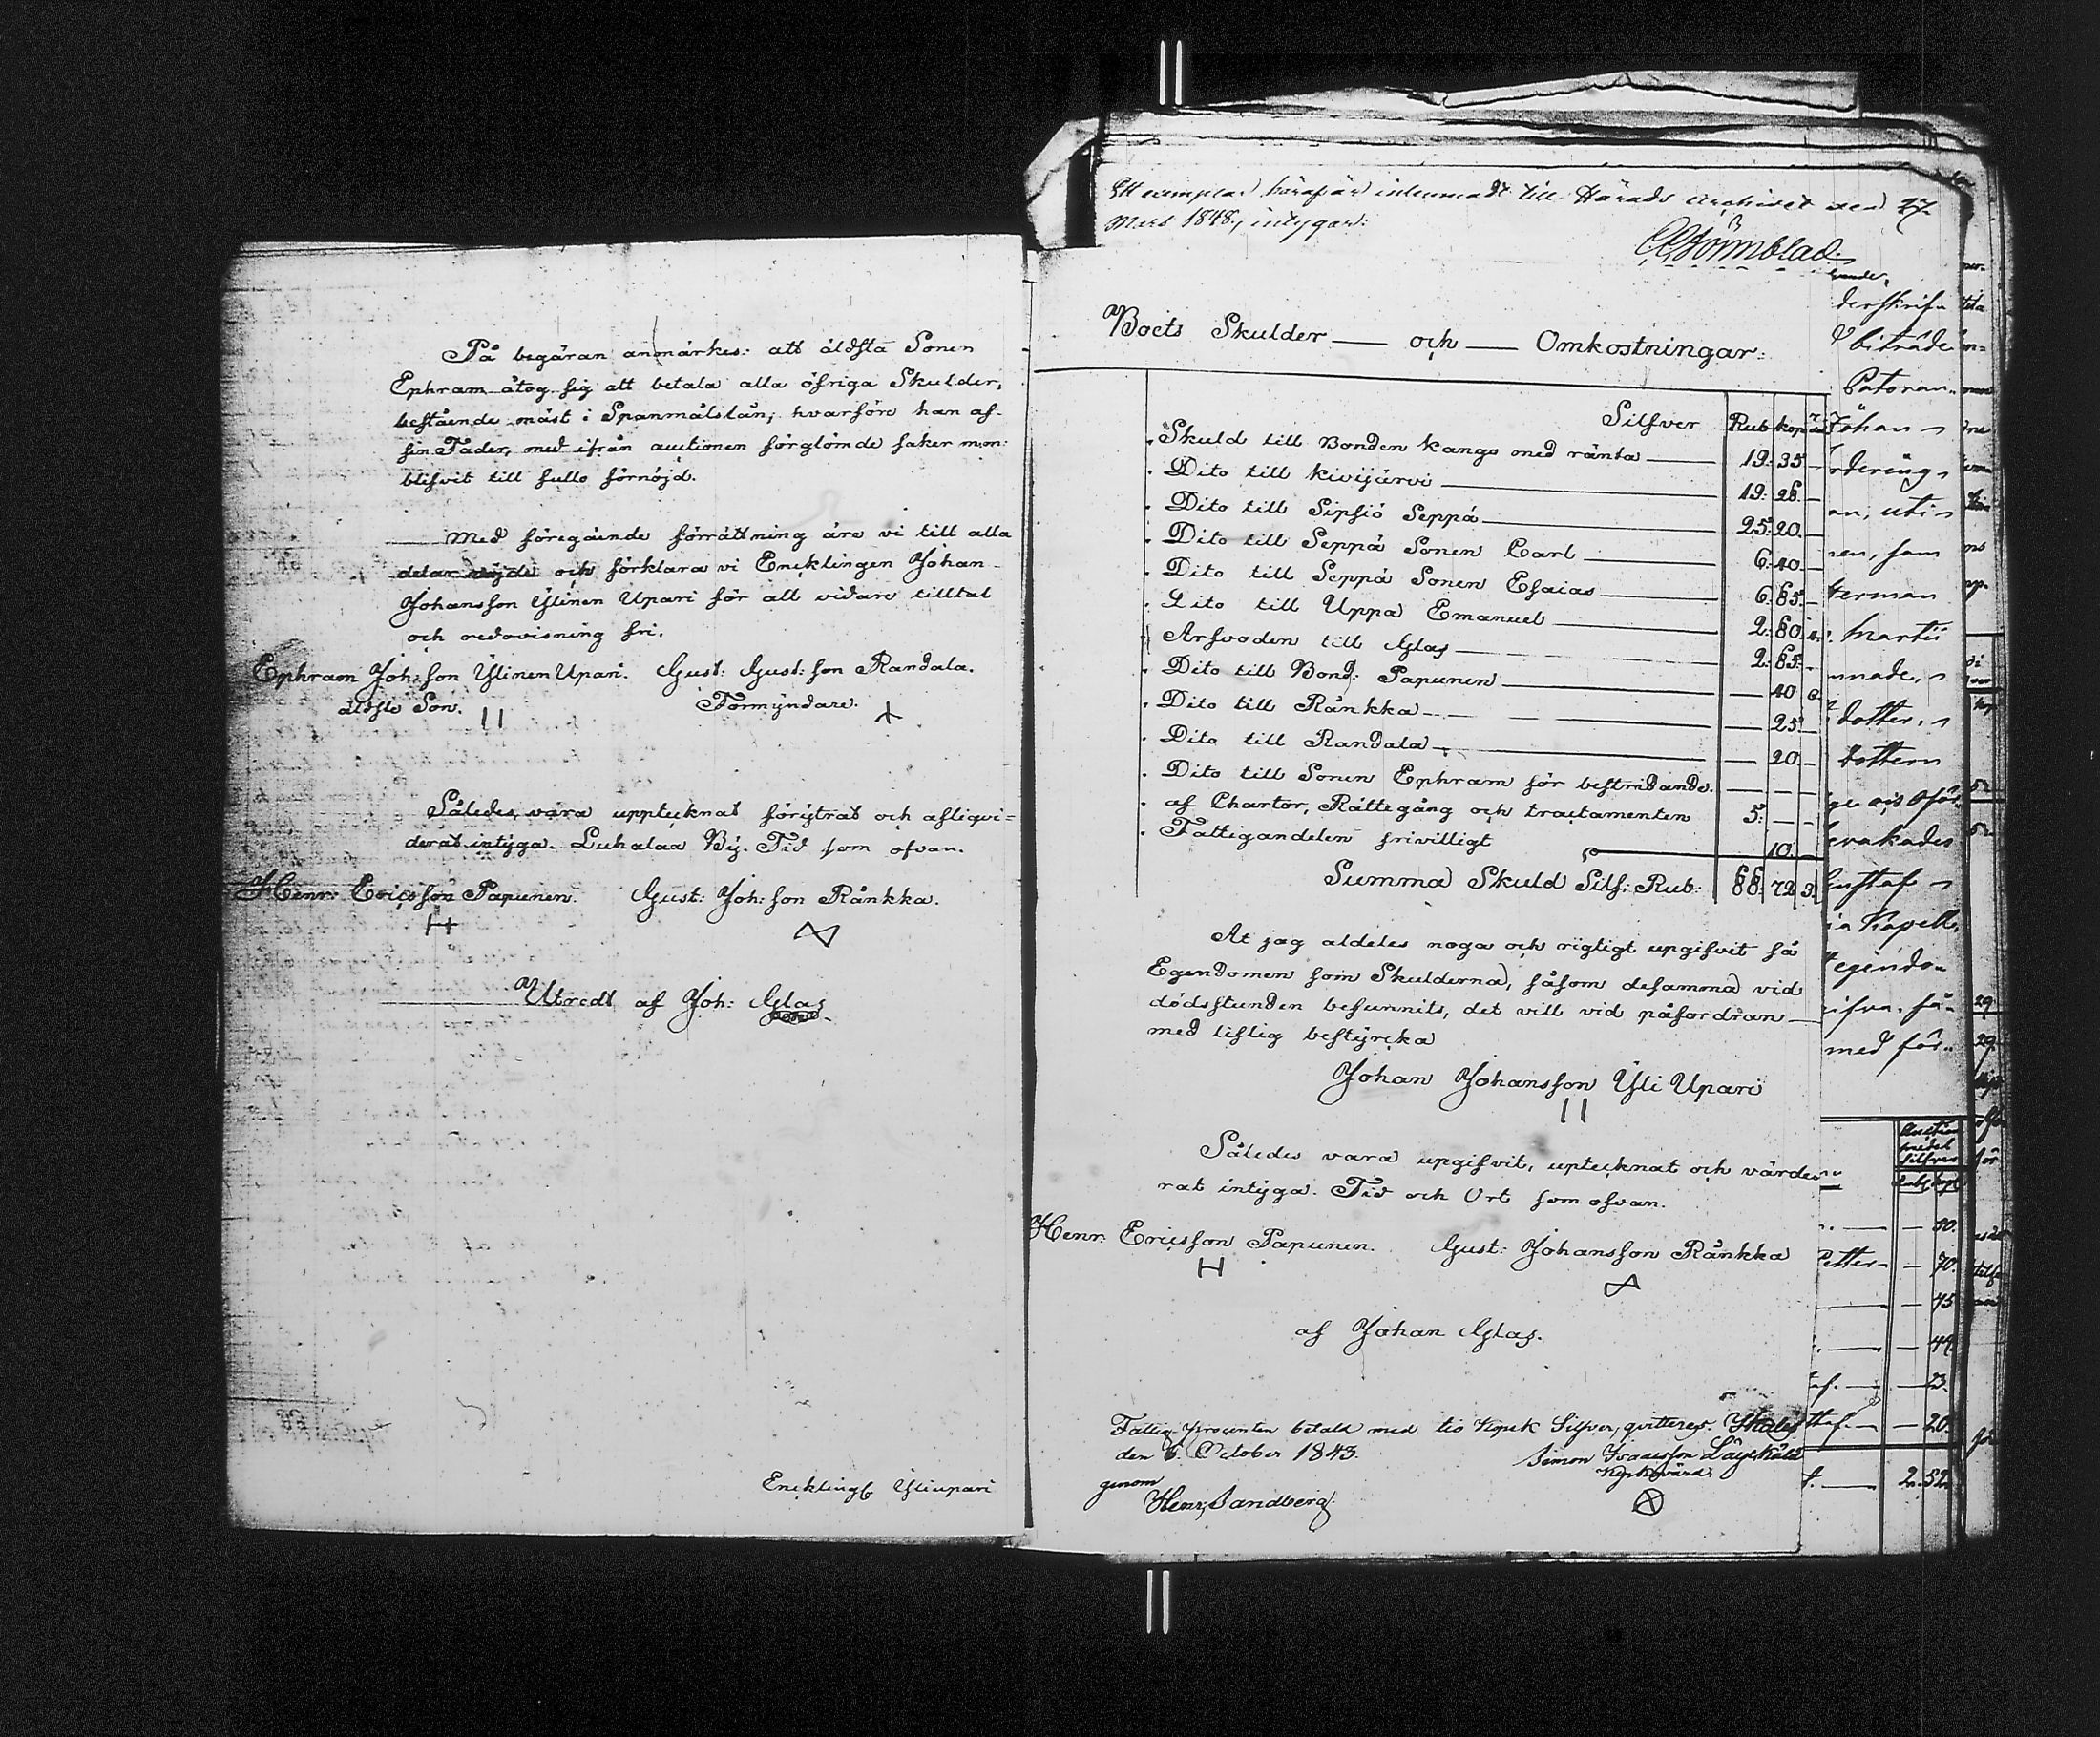 På begäran anmärkes: att äldsta Sonen
Ephram åtog sig att betala alla öfriga Skulder,
bestående mäst i Spanmålslån, hvarföre han af
sin Fader, med ifrån auctionen förglömde saker
blifvit till fullo förnöjd.
Med föregående förrättning äre vi till alla
delar nöjde och förklara vi Encklingen Johan
Johansson Ylinen Upari för all vidare tilltal
och redovisning fri.
Ephram Joh: son Ylinen Upari. Gust: Gust: son Randala.
äldste Son. Förmyndare.
Således vara upptecknat förytrat och afliqvi=
derat intyga. Luhalaa By. Tid som ofvan.
Henr: Ericsson Papunen. Gust: Joh: son Ränkka.
H
Utredt af Joh: Glas
Enckling Yliupari
Ett exemplar häraf är inlemnadt till Härads Archivet den 27
Mars 1848, intygar:
Boets Skulder — och — Omkostningar:
Silfver Rub kop
Skuld till Bonden Kango med ränta — 19. 35 —
Dito till Kivijärvi — 19. 28. —
Dito till Sipsiö Seppä — 25. 20. —
Dito till Seppä Sonen Carl — 6. 40 —
Dito till Seppä Sonen Esaias — 6. 85. —
Dito till Uppa Emanuel — 2. 80.
Arfvoden till Glas — 2. 85. —
Dito till Bond: Papunen — 40
Dito till Ränkka — 25. —
Dito till Randala — 20. —
Dito till Sonen Ephram för bestridande. — — —
af Chartor, Rättegång och tractamenten 5. — —
Fattigandelen frivilligt 10. —
Summa Skuld Silf: Rub: 88. 72 3.
At jag aldeles noga och rigtigt upgifvit så
Egendomen som Skulderna, såsom desamma vid
dödsstunden befunnits, det vill vid påfordran
med liflig bestyrcka
Johan Johansson Yli Upari
Således vara upgifvit, uptecknat och värde
rat intyga. Tid och Ort som ofvan.
Henr: Ericsson Papunen. Gust: Johansson Ränkka
H
af Johan Glas.
Fattig procenten betald med tio Kopek Silfver, qvitteras.
den 6. October 1843. Simon
genom
Henr: Sandberg.
derskrif-
biträde
Johan
an, uti
som
Martii
dotter.
dottern
Gustaf
Kapell
egendo-
med för-
Petter — 70.
45
49.
23.
20.
2. 52.